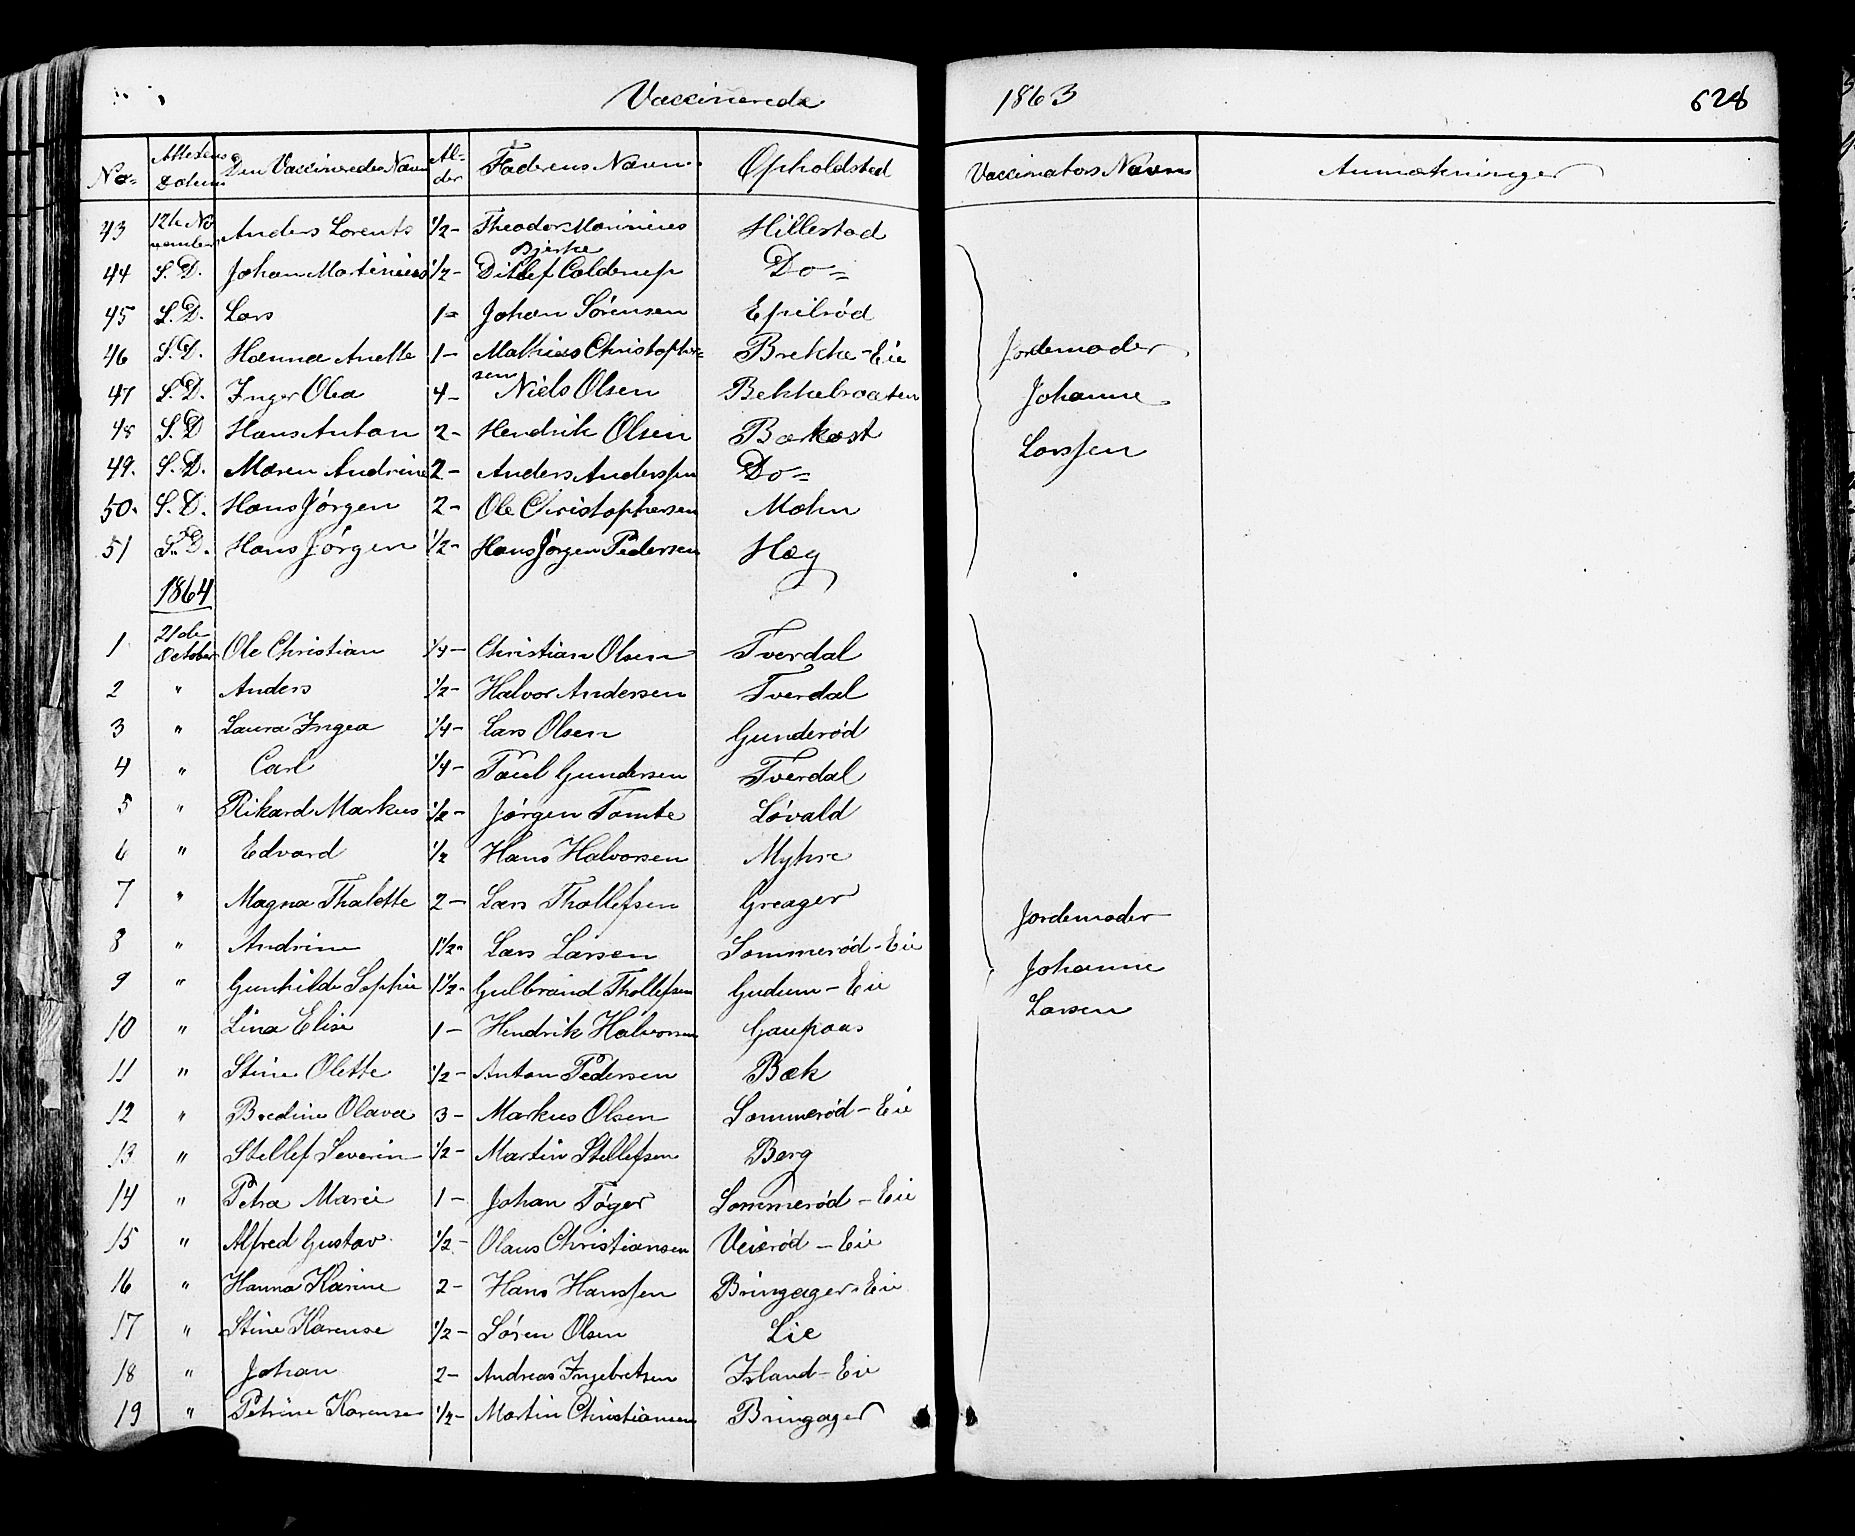 Vaccinerede 1863 628
No= Attestens Datum Den Vaccineredes Navn Alder Faderens Navn Opholdsted Vaccinators Navn Anmærkninger
43 12te November Anders Lorents 1/2- Theodor Marinius Bjerke Hillestad
44 S.D. Johan Martinius 1/2- Ditlef Colderup Do=
45 S.D. Lars 1= Johan Sørensen
46 S.D. Hanna Anette 1- Mathias Christophersen Brekke-Eie Jordemoder
47 S.D. Inger Olea 4- Niels Olsen Bekkebraaten Johanne
48 S.D Hans Anton 2- Hendrik Olsen Bækøst Larssen
49. S.D. Maren Andrine 2- Anders Anderssen Do=
50. S.D. Hans Jørgen 2- Ole Christophersen Mohn
51 S.D. Hans Jørgen 1/2- Hans Jørgen Pedersen Hæg
1864
1 21de October Ole Christian 1/4- Christian Olsen Tverdal
2 " Anders 1/2- Halvor Andersen Tverdal
3 " Laura Ingea 1/4- Lars Olsen Gunderød
4 " Carl 1/4- Paul Gundersen Tverdal
5 " Rikard Markus 1/2- Jørgen Tomte Løvald
6 " Edvard 1/2 Hans Halvorsen Myhre
7 " Magna Thalette 2- Lars Thollefsen Greager Jordemoder
8 " Andrine 1 1/2" Lars Larsen Sommerød-Eie
9 " Gunhilde Sophie 1 1/2- Gulbrand Thollefsen Gudum-Eie Johanne
10 " Lina Elise 1- Hendrik Halvorsen Gaupaas Larsen
11 " Stine Olette 1/2- Anton Pedersen Bæk
12 " Bredine Olava 3- Markus Olsen Sommerød-Eie
13 " Stellef Severin 1/2- Martin Stellefsen Berg
14 " Petra Marie 1- Johan Tøger Sommerød-Eie
15 " Alfred Gustav 1/2- Olaus Christiansen Veierød-Eie
16 " Hanna Karine 2- Hans Hanssen Bringager-Eie
17 " Stine Karense 1/2- Søren Olsen Lie
18 " Johan 2- Andreas Ingebretsen Island-Eie
19 " Petrine Karense 1/2- Martin Christiansen Bringager